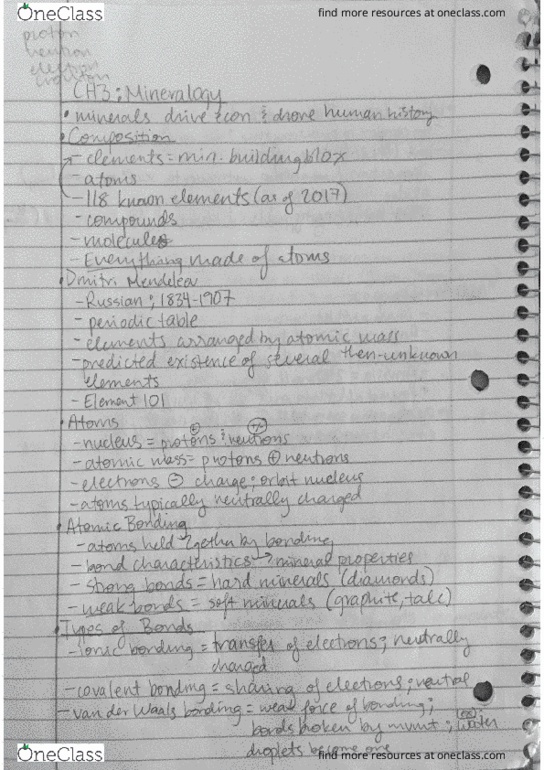 OneClass find more resources at oneclass.com
proton
neutron
electron
CH3: Mineralogy
• minerals drive econ & drove human history
• Composition
- elements = min. building blox
- atoms
- 118 known elements (as of 2017)
- compounds
- molecules
- Everything made of atoms
• Dmitri Mendeleev
- Russian; 1834-1907
- periodic table
- elements arranged by atomic mass
- predicted existence of several then-unknown
elements
- Element 101
• Atoms
- nucleus = protons & neutrons
- atomic mass = protons ⊕ neutrons
- electrons ⊖ charge; orbit nucleus
- atoms typically neutrally charged
• Atomic Bonding
- atoms held 2gether by bonding
- bond characteristics → mineral properties
- strong bonds = hard minerals (diamonds)
- weak bonds = soft minerals (graphite, talc)
• Types of Bonds
- ionic bonding = transfer of electrons; neutrally
charged
- covalent bonding = sharing of electrons; neutral
- van der Waals bonding = weak force of bonding;
bonds broken by mvmt; (ex): water
droplets become one
OneClass find more resources at oneclass.com